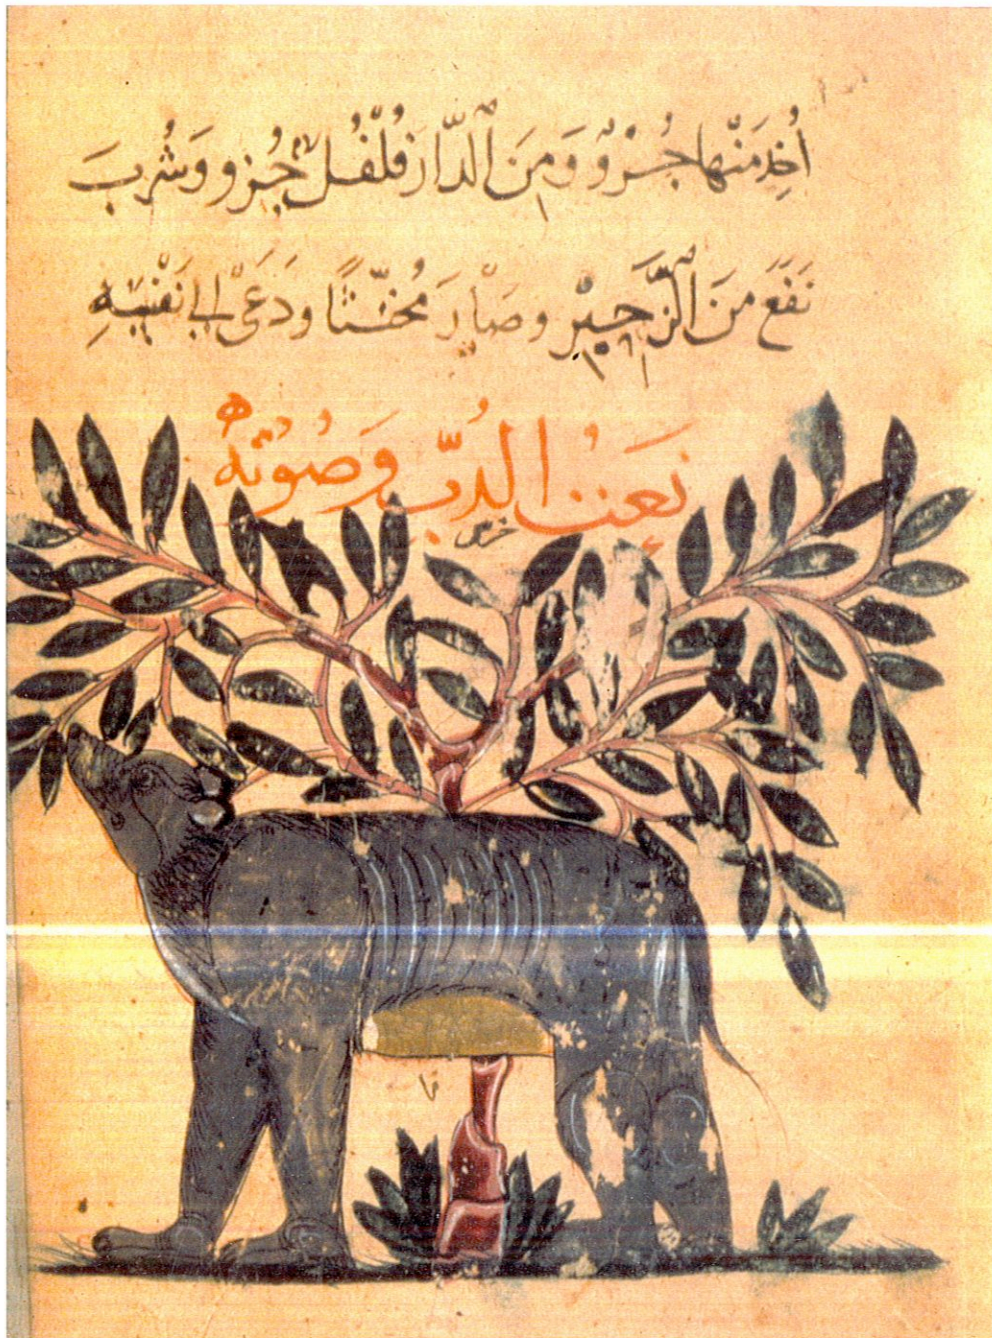 أُخِذَ مِنْها جُزْوٌ وَمِنَ الدَّارَ فُلْفُل جُزو وَشُرِبَ
نَفَعَ مِنَ الزَّحِيْر وصَارَ مُخنّثًا ودَعَى إلى نَفْسِهِ
نَعتُ الدُّبّ وَصُوْتهُ
خرس